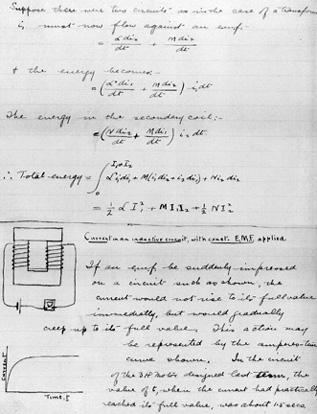 Suppose there were two circuits as in the case of a transformer
i₁ must now flow against an emf:-
= L di₁/dt + M di₂/dt
& the energy becomes:-
= (L di₁/dt + M di₂/dt) i₁ dt
The energy in the secondary coil:-
= (N di₂/dt + M di₁/dt) i₂ dt
∴ Total energy = ∫₀^{I₁,I₂} L i₁di₁ + M(i₁di₂ + i₂di₁) + N i₂ di₂
= ½ L I₁² + M I₁I₂ + ½ N I₂²
Current in an inductive circuit, with const. E.M.F. applied.
If an emf be suddenly impressed
on a circuit such as shown, the
current would not rise to its full value
immediately, but would gradually
creep up to its full value. This action may
be represented by the amperes-time
curve shown. In the circuit
of the designed last term, the
value of t, when the current had practically
reached its full value, was about secs
Current
Time, t